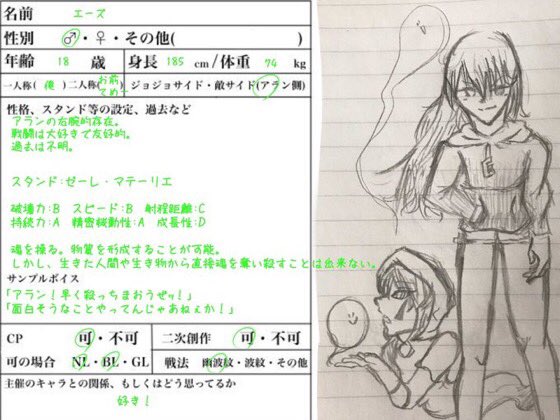 名前 エーズ
性別 ♂・♀・その他( )
年齢 18 歳 身長 185 cm/体重 74 kg
一人称( 俺 ) 二人称( お前 てめぇ ) ジョジョサイド・敵サイド(アラン側)
性格、スタンド等の設定、過去など
アランの右腕的存在。
戦闘は大好きで友好的。
過去は不明。
スタンド:ゼーレ・マテーリエ
破壊力:B スピード:B 射程距離:C
持続力:A 精密梴動性:A 成長性:D
魂を操る。物質を形成することが可能。
しかし、生きた人間や生き物から直接魂を奪い殺すことは出来ない。
サンプルボイス
「アラン!早く殺っちまおうぜッ!」
「面白そうなことやってんじゃあねぇか!」
CP 可・不可 二次創作 可・不可
可の場合 NL・BL・GL 戦法 幽波紋・波紋・その他
主催のキャラとの関係、もしくはどう思ってるか
好き!